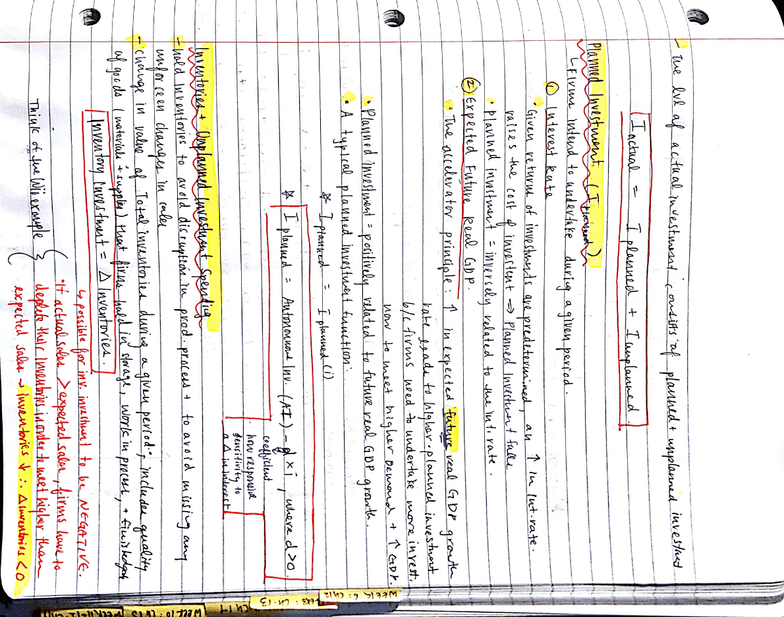 - The lvl of actual investment, consists of planned + unplanned investment
I actual = I planned + I unplanned
Planned Investment (I planned)
↳ Firms intend to undertake during a given period.
① Interest Rate
• Given returns of investments are predetermined, an ↑ in int. rate.
raises the cost of investment → Planned Investment falls
• Planned investment = inversely related to the int. rate.
② Expected Future Real GDP.
• The accelerator principle: ↑ in expected future real GDP growth
rate leads to higher planned investment
b/c firms need to undertake more invest.
now to meet higher Demand + ↑ GDP.
• Planned investment = positively related to future real GDP growth.
• A typical planned investment function:
* I planned = I planned (i)
* I planned = Autonomous Inv. (AI) - d × i, where d > 0.
coefficient
how responsive
sensitivity to
a Δ in interest
Inventories + Unplanned Investment Spending
- hold inventories to avoid disruption in prod. process + to avoid missing any
unforeseen changes in sales
- change in value of Total inventories during a given period; includes quality
of goods (materials + supplies) that firms hold in storage, work in process, + finished goods
Inventory Investment = Δ Inventories.
↳ possible for inv. investment to be NEGATIVE.
Think of the Wii example
• If actual sales > expected sales, firms have to
deplete their inventories in order to meet higher than
expected sales → inventories ↓ ∴ Δ inventories < 0
WEEK 6: CH12
CH 13
CH 14
WEEK 10: CH 15
WEEK 11+12: CH